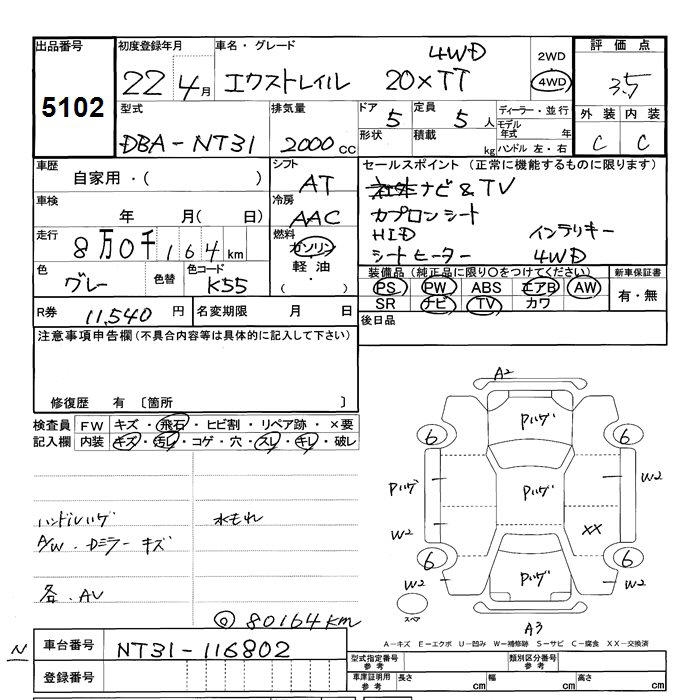 出品番号 初度登録年月 車名・グレード 評価点
5102 22 4月 エクストレイル 20×TT 4WD 2WD 4WD 3.5
型式 排気量 ドア 定員 ディーラー・並行 外装 内装
DBA-NT31 2000cc 5 5人 モデル年式 年 C C
形状 積載 kg ハンドル 左・右
車歴 シフト セールスポイント(正常に機能するものに限ります)
自家用・( ) AT ナビ&TV
車検 冷房 カプロンシート
年 月( 日) AAC HID インテリキー
走行 燃料 シートヒーター 4WD
8万0千164km ガソリン
軽油・
( )
色 色替 色コード 装備品(純正品に限り○をつけてください) 新車保証書
グレー K55 PS PW ABS エアB AW 有・無
SR ナビ TV カワ
R券 11,540円 名変期限 月 日 後日品
注意事項申告欄(不具合内容等は具体的に記入して下さい)
修復歴 有 〔箇所 〕
検査員記入欄 FW キズ・飛石・ヒビ割・リペア跡・×要
内装 キズ・汚レ・コゲ・穴・スレ・キレ・破レ
ハンドルハゲ 水もれ
A/W・Dミラー キズ
各・AV
◎80164km
A2
Pハゲ
6 6
Pハゲ Pハゲ W2
W2 XX
6 6
W2 Pハゲ W2
スペア
A3
A-キズ E-エクボ U-凹み W-補修跡 S-サビ C-腐食 XX-交換済
N 車台番号 NT31-116802
登録番号
型式指定番号 参考 類別区分番号 参考
車庫証明用 参考 長さ cm 幅 cm 高さ cm